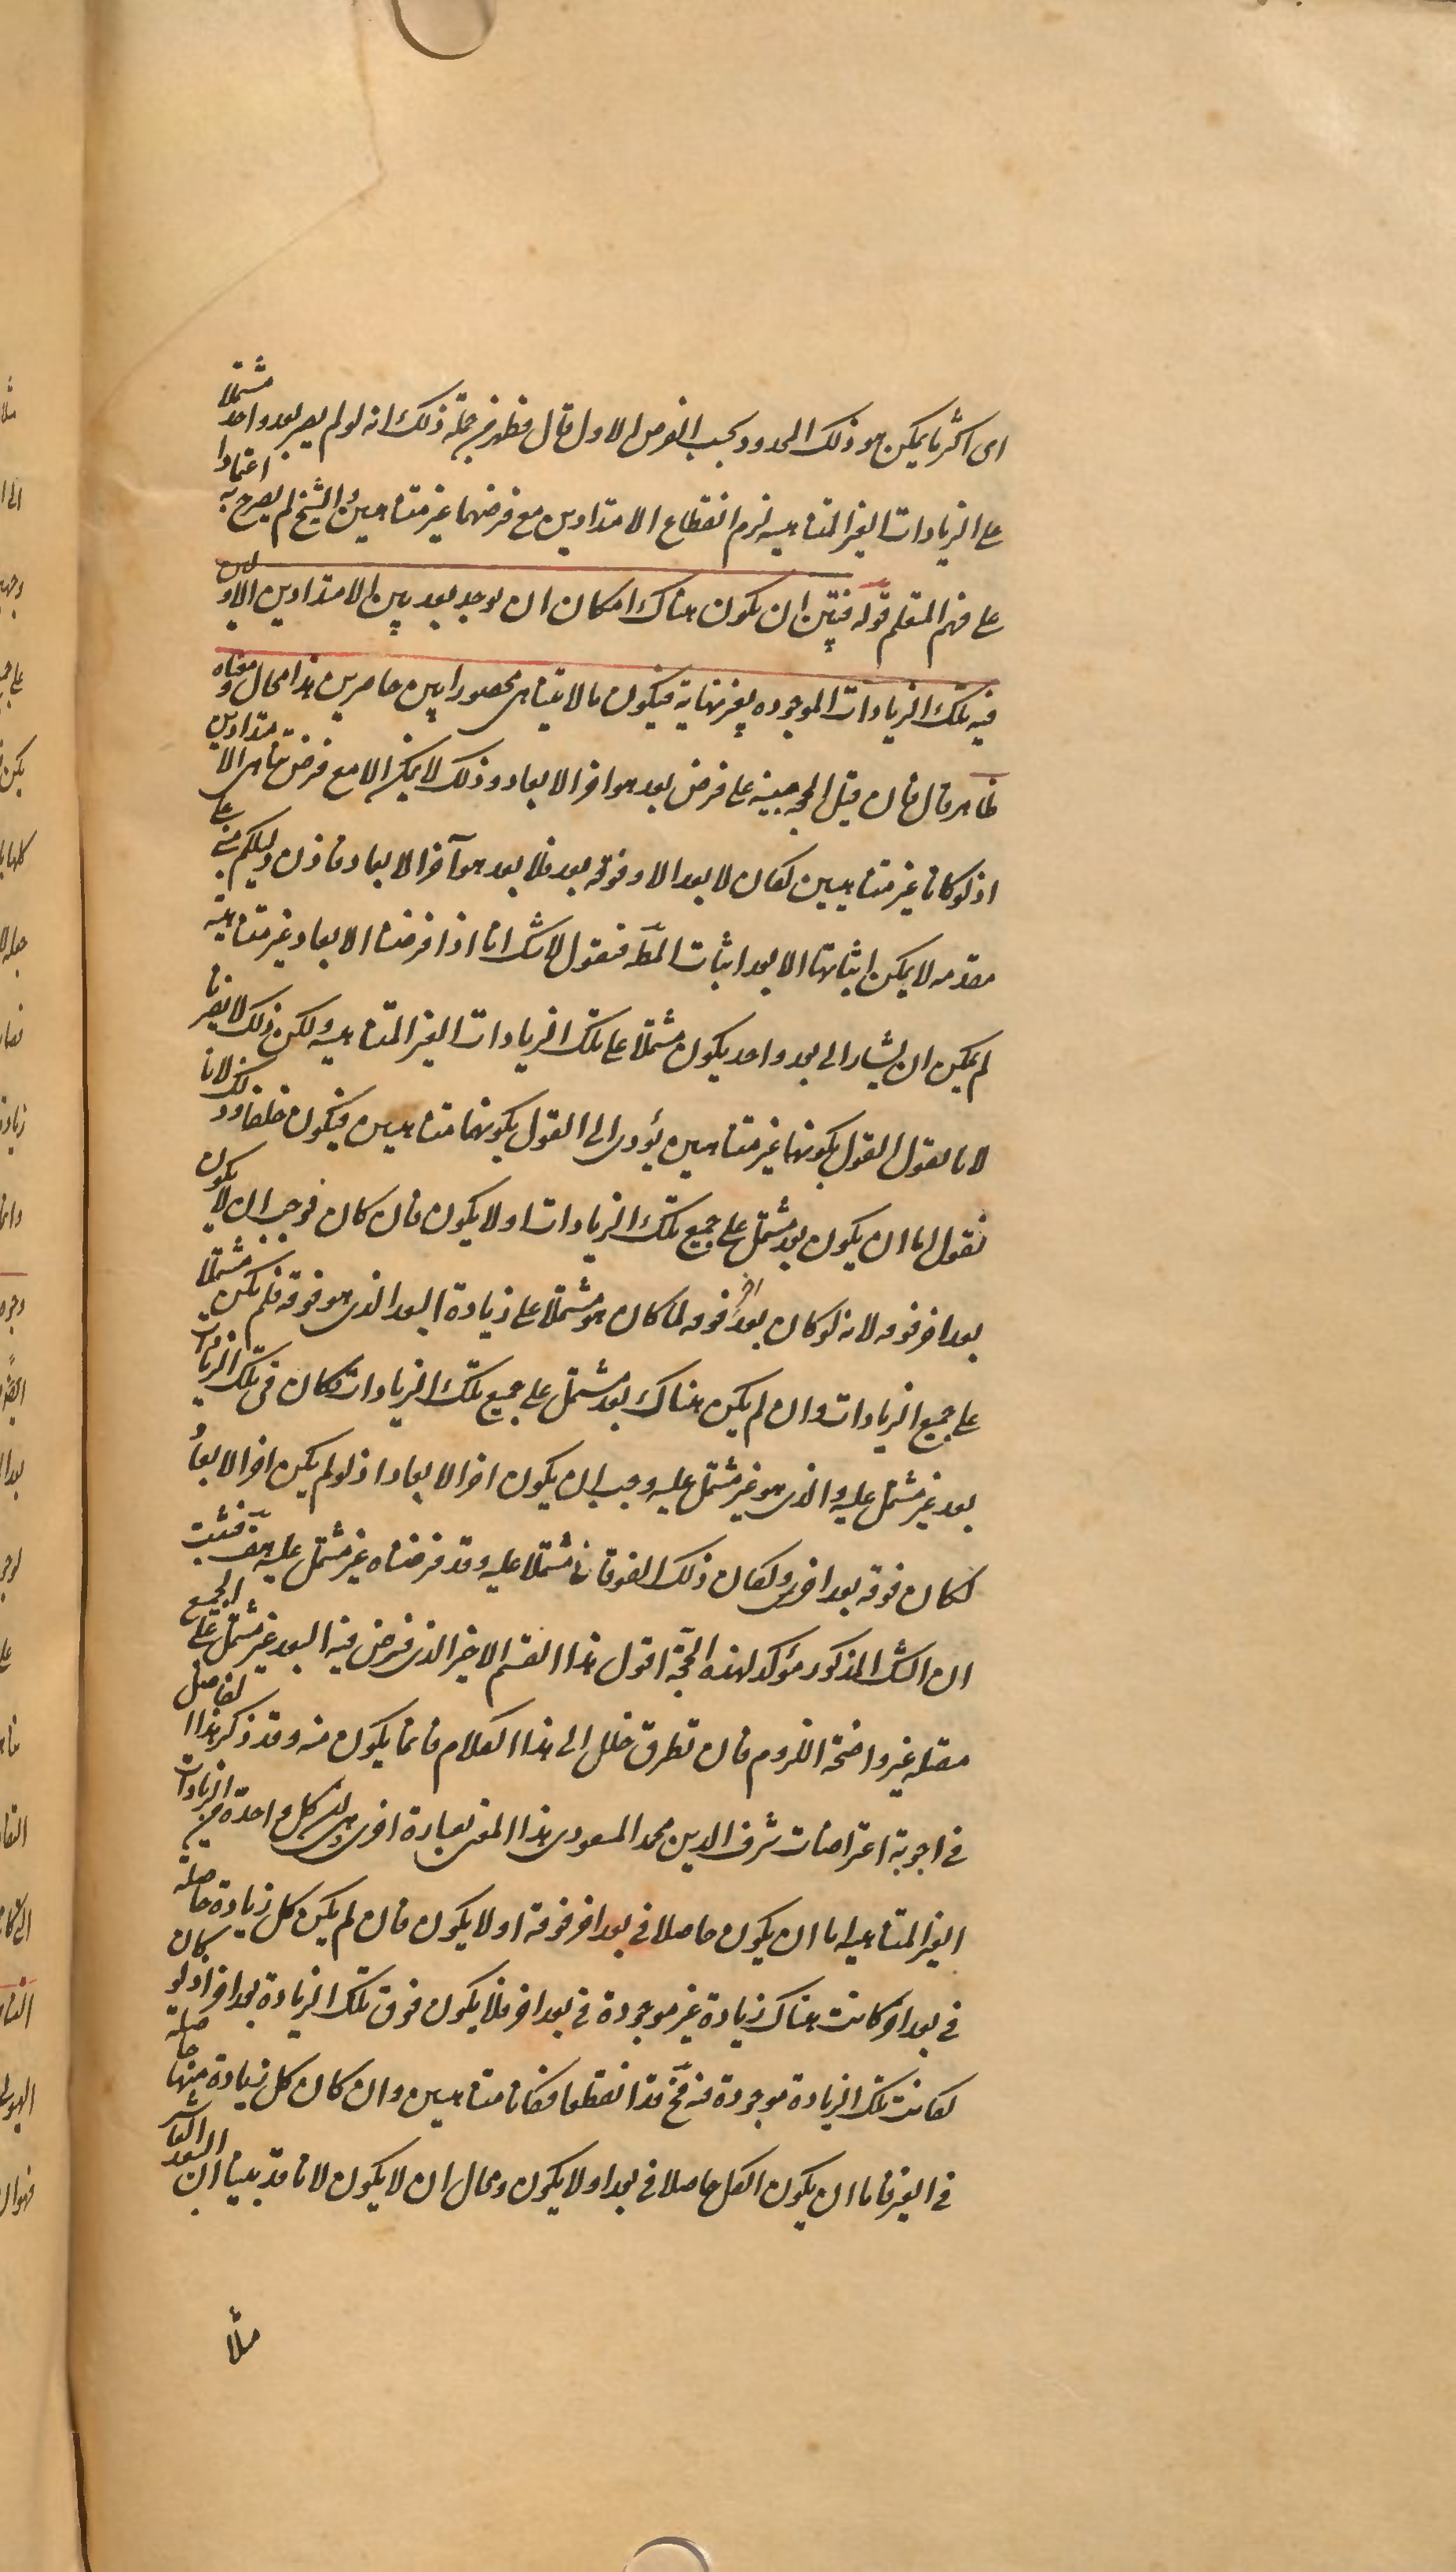 اى اكثر ما يمكن هو ذلك المحدود بحسب الفرض الاول قال فظهر من جملة ذلك انه لو لم يصر بعد واحد مشتملا
على الزيادات الغير المتناهيه لزم انقطاع الامتدادين مع فرضهما غير متناهيين والشيخ لم يصرح به اعتمادا
على فهم المتعلم قوله فتبين ان يكون هناك امكان ان يوجد بعد بين الامتدادين الاولين
فيه تلك الزيادات الموجوده بغير نهاية فيكون ما لا يتناهى محصورا بين حاصرين هذا محال ومعناه
ظاهر قال فان قيل الحجه مبنية على فرض بعد هو اخر الابعاد وذلك لا يمكن الا مع فرض تناهى الامتدادين
اذ لو كانا غير متناهيين لكان لا بعد الا وفوقه بعد فلا بعد هو آخر الابعاد فاذن دليلكم مبنى على
مقدمه لا يمكن اثباتها الا بعد اثبات المط فنقول لا شك انا اذا فرضنا الابعاد غير متناهية
لم يمكن ان يشار الى بعد واحد يكون مشتملا على تلك الزيادات الغير المتناهيه ولكن ذلك لا يضرنا
لانا نقول القول بكونهما غير متناهيين يؤدى الى القول بكونهما متناهيين فيكون خلفا وذلك لانا
نقول اما ان يكون بعد مشتمل على جميع تلك الزيادات اولا يكون فان كان فوجب ان لا يكون
بعد اخر فوقه لانه لو كان بعد اخر فوقه لما كان هو مشتملا على زيادة البعد الذى هو فوقه فلم يكن مشتملا
على جميع الزيادات وان لم يكن هناك بعد مشتمل على جميع تلك الزيادات لكان فى تلك الزيادات
بعد غير مشتمل عليه والذى هو غير مشتمل عليه وجب ان يكون اخر الابعاد اذ لو لم يكن اخر الابعاد
لكان فوقه بعد اخر ولكان ذلك الفوقانى مشتملا عليه وقد فرضناه غير مشتمل عليه هف فثبت
ان الشك المذكور مؤكد لهذه الحجة اقول هذا القسم الاخير الذى فرض فيه البعد غير مشتمل على الجميع
مقتله غير واضحة اللزوم فان تطرق خلل الى هذا الكلام فانما يكون منه وقد ذكر هذا الفاضل
فى اجوبة اعتراضات شرف الدين محمد المسعودى هذا المعنى بعبارة اخرى وهى ان كل واحدة من الزيادات
الغير المتناهيه اما ان يكون حاصلا فى بعد اخر فوقه اولا يكون فان لم يكن كل زيادة حاصله
فى بعد اخر كانت هناك زيادة غير موجودة فى بعد اخر فلا يكون فوق تلك الزيادة بعد اخر اذ لو كان
لكانت تلك الزيادة موجودة فيه فح قد انقطعا فكانا متناهيين وان كان كل زيادة منها حاصلة
فى الغير فاما ان يكون الكل حاصلا فى بعد اولا يكون ومحال ان لا يكون لانا قد بينا ان البعد العاشر
مثلا